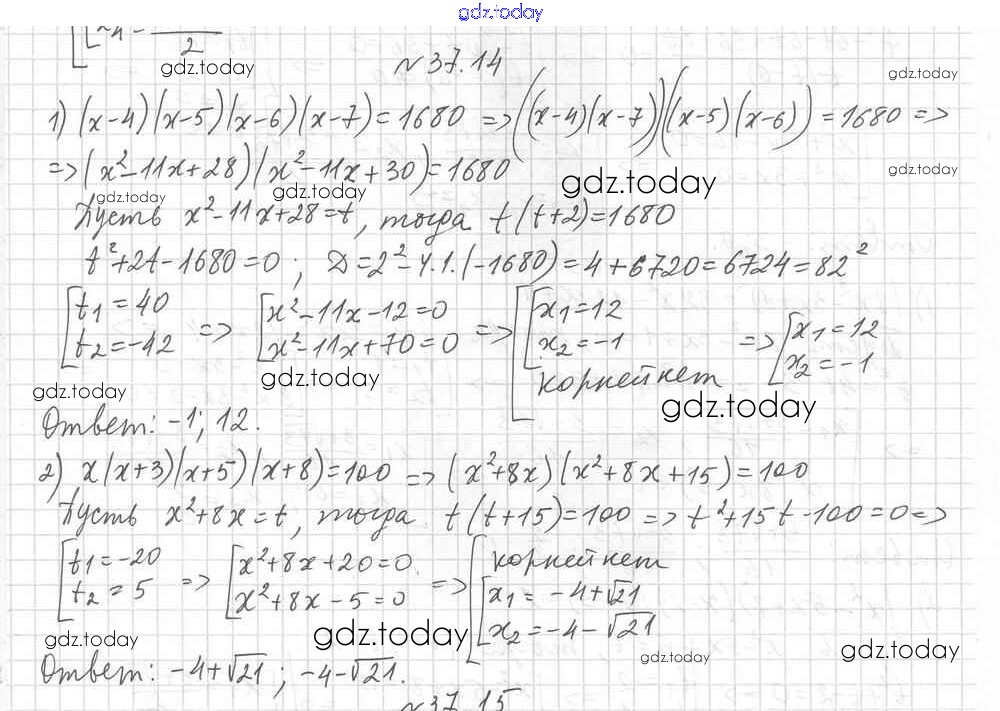 gdz.today
2
gdz.today
№ 37.14
gdz.today
1) (x-4)(x-5)(x-6)(x-7)=1680 => ((x-4)(x-7))((x-5)(x-6))=1680 =>
=> (x²-11x+28)(x²-11x+30)=1680
gdz.today gdz.today gdz.today gdz.today
Пусть x²-11x+28=t, тогда t(t+2)=1680
t²+2t-1680=0; D=2²-4·1·(-1680)=4+6720=6724=82²
[t₁=40 => [x²-11x-12=0 => [[x₁=12 => [x₁=12
t₂=-42 x²-11x+70=0 x₂=-1 x₂=-1
корней нет
gdz.today gdz.today gdz.today
Ответ: -1; 12.
2) x(x+3)(x+5)(x+8)=100 => (x²+8x)(x²+8x+15)=100
Пусть x²+8x=t, тогда t(t+15)=100 => t²+15t-100=0 =>
[t₁=-20 => [x²+8x+20=0 => [корней нет
t₂=5 x²+8x-5=0 [x₁=-4+√21
x₂=-4-√21
gdz.today gdz.today gdz.today gdz.today
Ответ: -4+√21; -4-√21.
№ 37.15